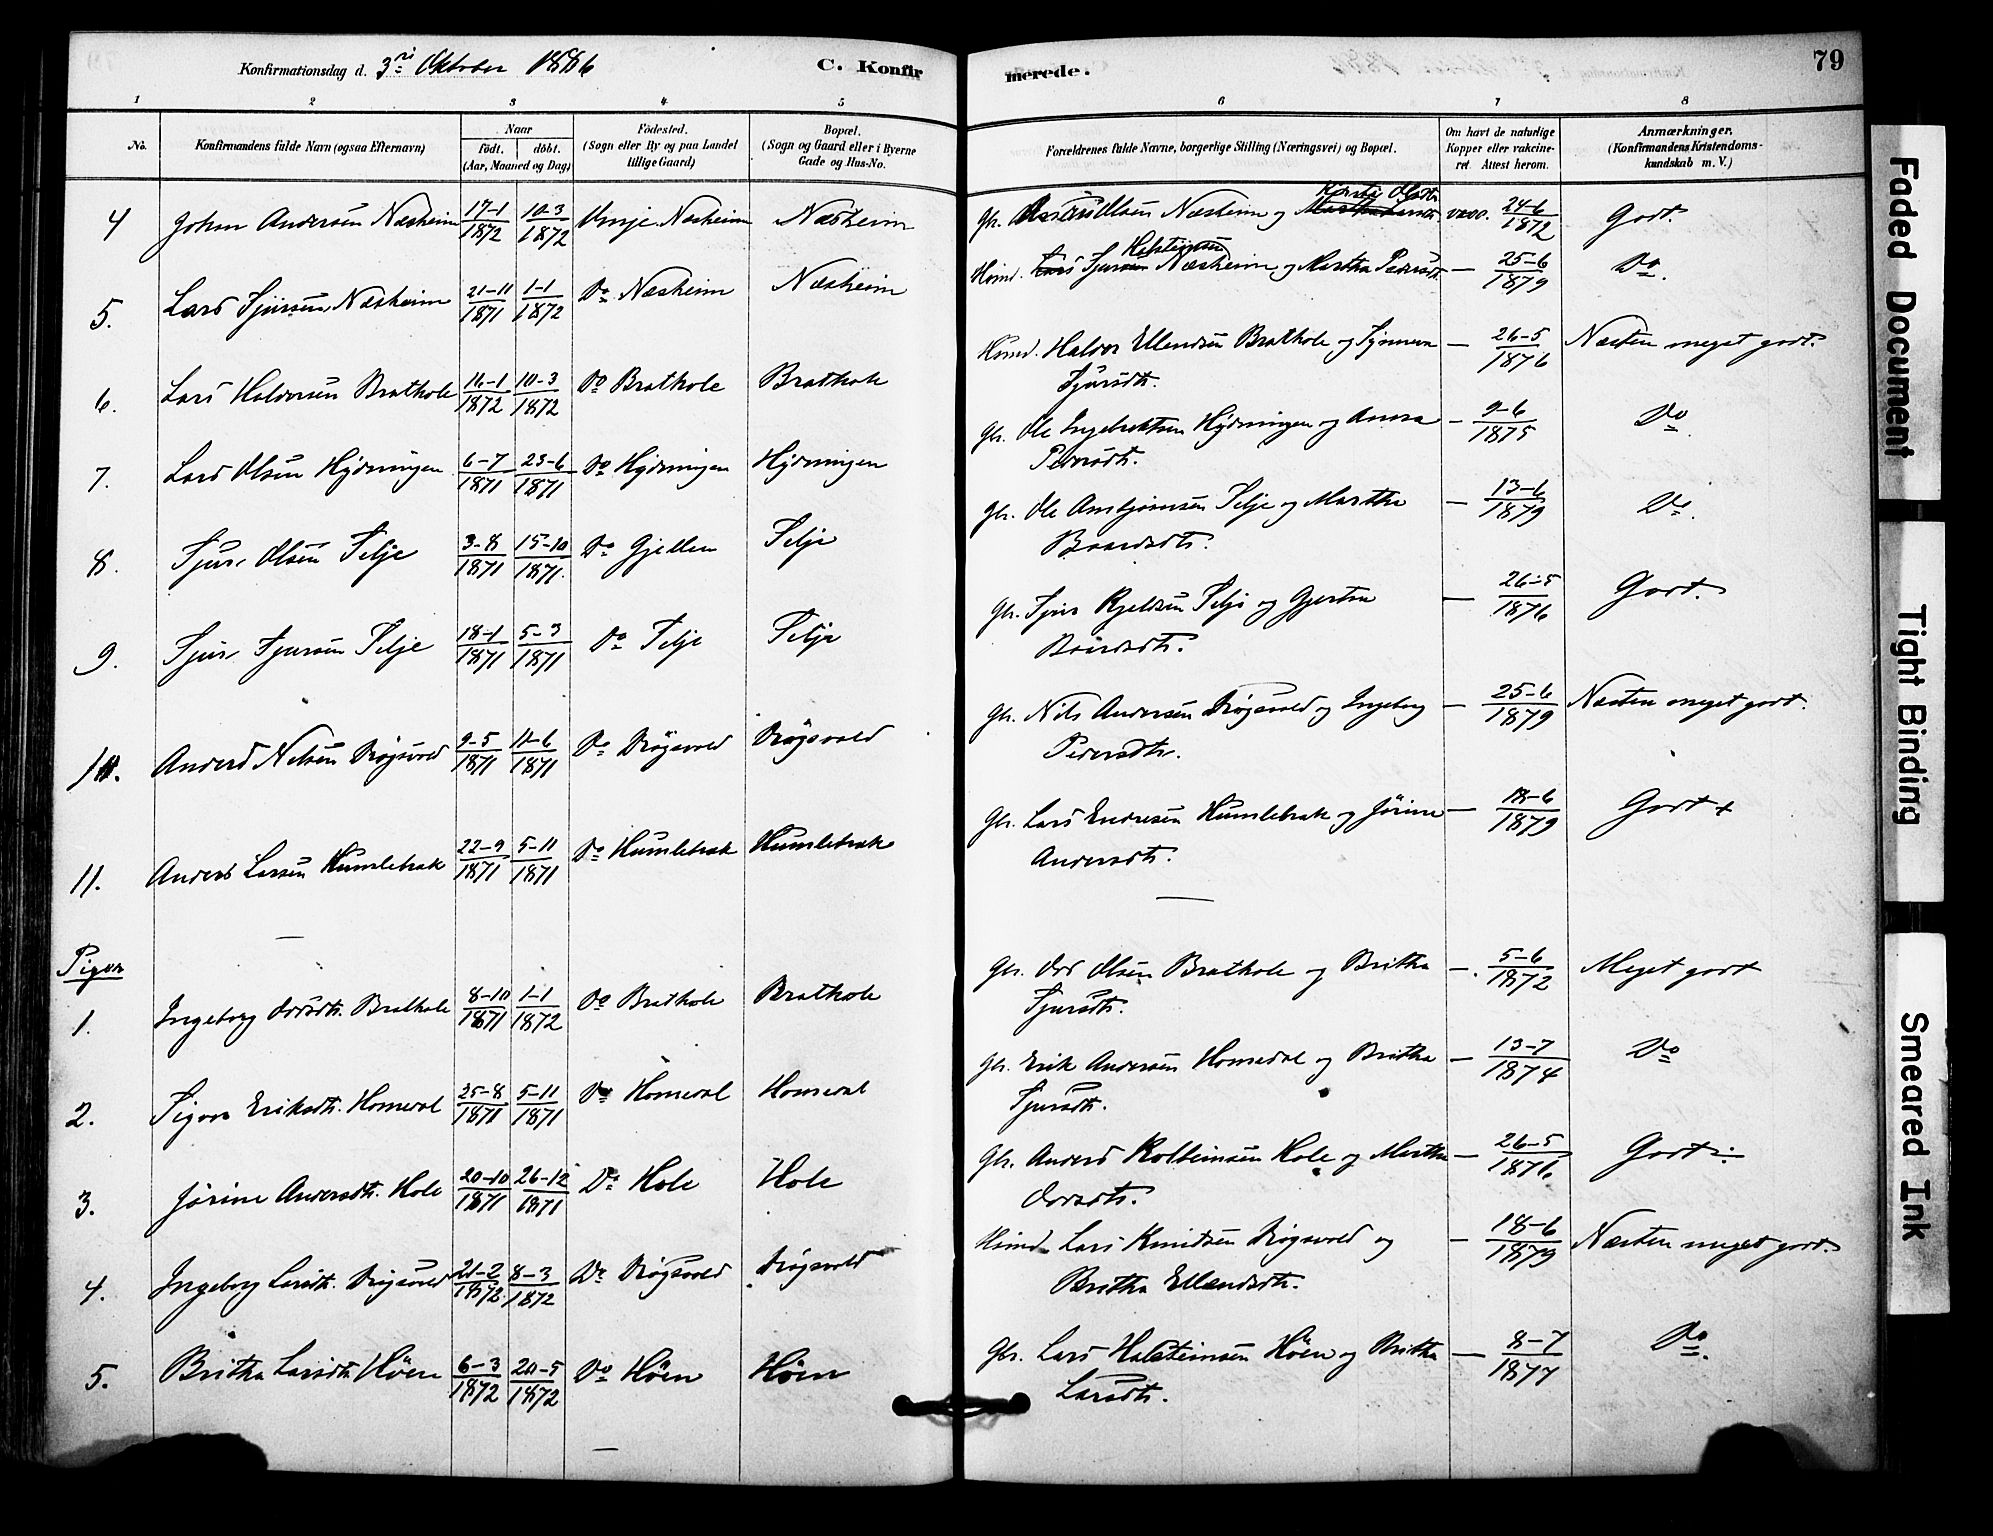 Konfirmationsdag d. 3die Oktober 1886 C. Konfirmerede. 79
1 2 3 4 5 6 7 8
No. Konfirmandens fulde Navn (ogsaa Efternavn) Naar født. døbt. (Aar, Maaned og Dag) Fødested. (Sogn eller By og paa Landet tillige Gaard) Bopæl. (Sogn og Gaard eller i Byerne Gade og Hus-No. Forældrenes fulde Navne, borgerlige Stilling (Næringsvei) og Bopæl. Om havt de naturlige Kopper eller vakcineret. Attest herom. Anmærkninger. (Konfirmandens Kristendomskundskab m. V.)
4 Johan Andersen Næsheim 17-1 1872 10-3 1872 Næsheim Næsheim Gbr. Olsen Næsheim og Olsdtr. vacc. 24-6 1872 Godt.
5. Lars Sjursen Næsheim 21-11 1871 1-1 1872 Do Næsheim Næsheim Huusmd. Sjur Helsteinsen Næsheim og Martha Pedersdtr. — 25-6 1879 Do.
6. Lars Haldorsen Brathole 16-1 1872 10-3 1872 Do Brathole Brathole Huusmd. Haldor Ellendsen Brathole og Synneva Sjursdtr. — 26-5 1876 Næsten meget godt.
7. Lars Olsen Hydningen 6-7 1871 23-6 1871 Do Hydningen Hydningen Gbr. Ole Ingebrektsen Hydningen og Anna Pedersdtr. — 9-6 1875 Do
8. Sjur Olsen Selje 3-8 1871 15-10 1871. Do Gjellen Selje Gbr. Ole Arnbjørnsen Selje og Martha Baardsdtr. — 13-6 1879 Do.
9. Sjur Sjursen Selje 18-1 1871 5-3 1871 Do Selje Selje Gbr. Sjur Kjeldsen Selje og Gjertru Baardsdtr. — 26-5 1876 Godt.
10. Anders Nilsen Drøgsvold 9-5 1871 11-6 1871 Do Drøgsvold Drøgsvold Gbr. Nils Andersen Drøgsvold og Ingeborg Pedersdtr. — 25-6 1879 Næsten meget godt.
11. Anders Larsen Humlebrek 22-9 1871 5-11 1871 Do Humlebrek Humlebrek Gbr. Lars Endresen Humlebrek og Jørine Andersdtr. — 18-6 1879 Godt +
Piger
1. Ingeborg Odsdtr. Brathole 8-10 1871 1-1 1872 Do Brathole Brathole Gbr. Odd Olsen Brathole og Britha Sjursdtr. — 5-6 1872 Meget godt
2. Sigvor Eriksdtr. Homedal 25-8 1871 5-11 1871 Do Homedal Homedal Gbr. Erik Andersen Homedal og Britha Sjursdtr. — 13-7 1874 Do
3. Jørine Andersdtr. Hole 20-10 1871 26-12 1871 Do Hole Hole Gbr. Anders Kolbeinsen Hole og Martha Odsdtr. — 26-5 1876 Godt ÷
4. Ingeborg Larsdtr. Drøgsvold 21-2 1872 8-3 1872 Do Drøgsvold Drøgsvold Huusmd. Lars Knudsen Drøgsvold og Britha Ellendsdtr. — 18-6 1879 Næsten meget godt.
5. Britha Larsdtr. Höen 6-3 1872 20-5 1872 Do Höen Höen Gbr. Lars Halsteinsen Höen og Britha Larsdtr. — 8-7 1877 Do.
Faded Document
Tight Binding
Smeared Ink